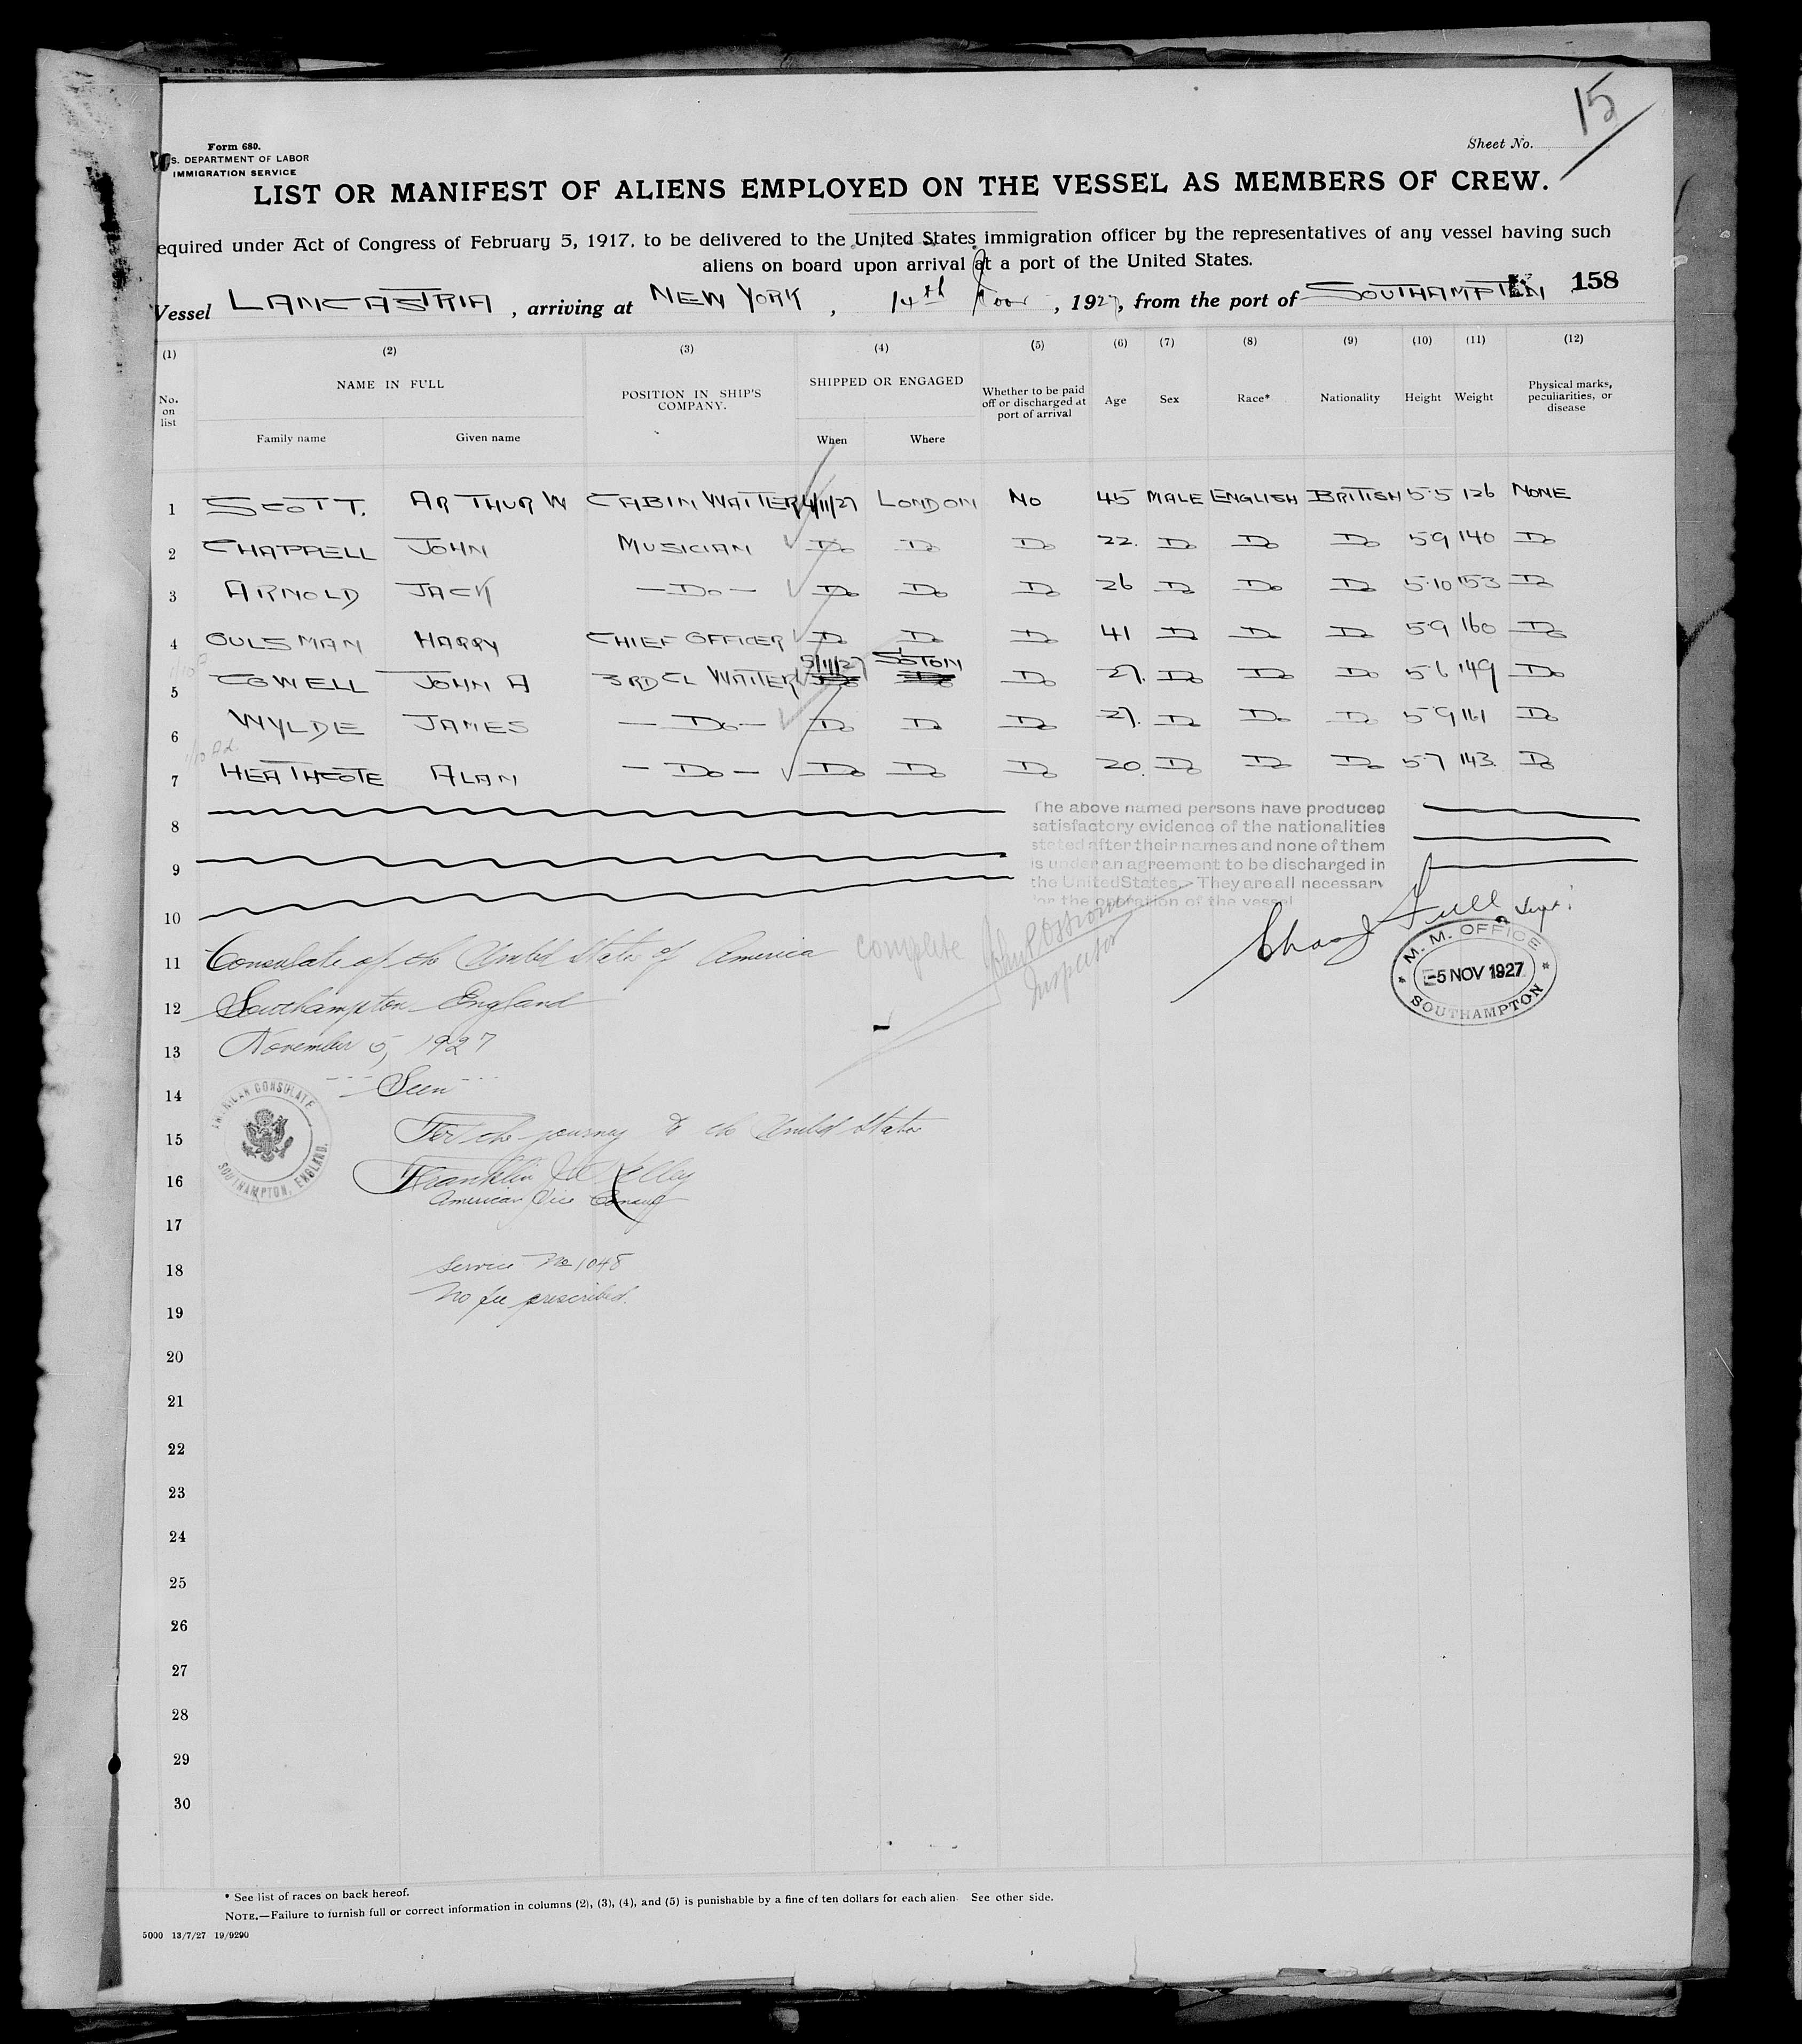 15
Form 680.
S. DEPARTMENT OF LABOR
IMMIGRATION SERVICE
Sheet No.
LIST OR MANIFEST OF ALIENS EMPLOYED ON THE VESSEL AS MEMBERS OF CREW.
equired under Act of Congress of February 5, 1917, to be delivered to the United States immigration officer by the representatives of any vessel having such
aliens on board upon arrival at a port of the United States.
158
Vessel LANCASTRIA, arriving at NEW YORK, 14th Nov, 1927, from the port of SOUTHAMPTON
(1) (2) (3) (4) (5) (6) (7) (8) (9) (10) (11) (12)
No. on list NAME IN FULL POSITION IN SHIP'S COMPANY. SHIPPED OR ENGAGED Whether to be paid off or discharged at port of arrival Age Sex Race* Nationality Height Weight Physical marks, peculiarities, or disease
Family name Given name When Where
1 SCOTT. ARTHUR W CABIN WAITER 4/11/27 LONDON NO 45 MALE ENGLISH BRITISH 5·5 126 NONE
2 CHAPPELL JOHN MUSICIAN Do Do Do 22. Do Do Do 5·9 140 Do
3 ARNOLD JACK — Do — Do Do Do 26 Do Do Do 5·10 153 Do
4 OULSMAN HARRY CHIEF OFFICER Do Do Do 41 Do Do Do 5·9 160 Do
5 COWELL JOHN A 3RD CL WAITER 5/11/27 SOTON Do 27. Do Do Do 5·6 149 Do
6 WYLDE JAMES — Do — Do Do Do 27. Do Do Do 5·9 161 Do
7 HEATHCOTE ALAN — Do — Do Do Do 20. Do Do Do 5·7 143. Do
8
9
10
The above named persons have produced
satisfactory evidence of the nationalities
stated after their names and none of them
is under an agreement to be discharged in
the United States. They are all necessary
for the operation of the vessel
Supt.
M. M. OFFICE
5 NOV 1927
SOUTHAMPTON
complete
Inspector
11 Consulate of the United States of America
12 Southampton England
13 November 5, 1927
14 Seen
AMERICAN CONSULATE
SOUTHAMPTON, ENGLAND.
15 For the journey to the United States
16 Franklin Kelley
American Vice Consul
17
18 Service No 1048
19 No fee prescribed.
20
21
22
23
24
25
26
27
28
29
30
* See list of races on back hereof.
NOTE.—Failure to furnish full or correct information in columns (2), (3), (4), and (5) is punishable by a fine of ten dollars for each alien. See other side.
5000 13/7/27 19/9290